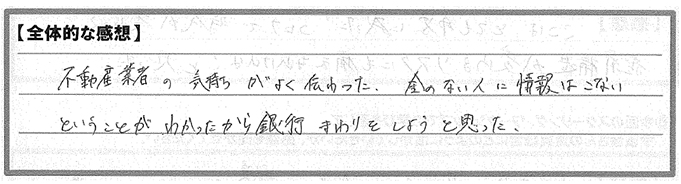 【全体的な感想】
不動産業者の気持ちがよく伝わった。金のない人に情報はこない
ということがわかったから銀行まわりをしようと思った。